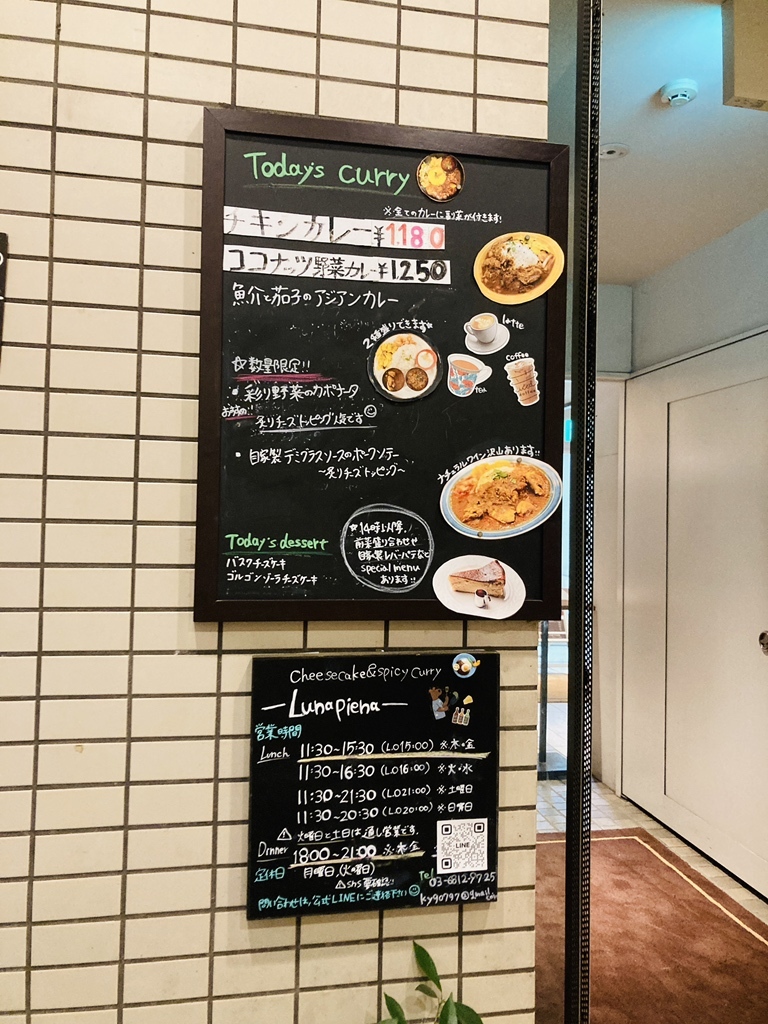 Today's curry
※全てのカレーに副菜が付きます!
チキンカレー¥1.180
ココナッツ野菜カレー¥1.250
魚介と茄子のアジアンカレー
2種盛りできます☆
latte
tea
coffee
☆数量限定!!
・彩り野菜のカポナータ
おすすめ!!
炙りチーズトッピング人気です
・自家製デミグラスソースのポークソテー
〜炙りチーズトッピング〜
ナチュラルワイン沢山あります!!
Today's dessert
バスクチーズケーキ
ゴルゴンゾーラチーズケーキ
☆14時以降、
前菜盛り合わせ
自家製レバーパテなど
special menu
あります!!
Cheesecake&spicy curry
—Lunapiena—
営業時間
Lunch 11:30~15:30 (LO15:00) ※木・金
11:30~16:30 (LO16:00) ※火・水
11:30~21:30 (LO21:00) ※土曜日
11:30~20:30 (LO20:00) ※日曜日
⚠火曜日と土日は通し営業です。
Dinner 18:00~21:00 ※木・金
定休日 月曜日,(火曜日)
⚠sns要確認!!
LINE
問い合わせは、公式LINEにご連絡下さい
Tel 03-6812-9725
ky90797@gmail.com